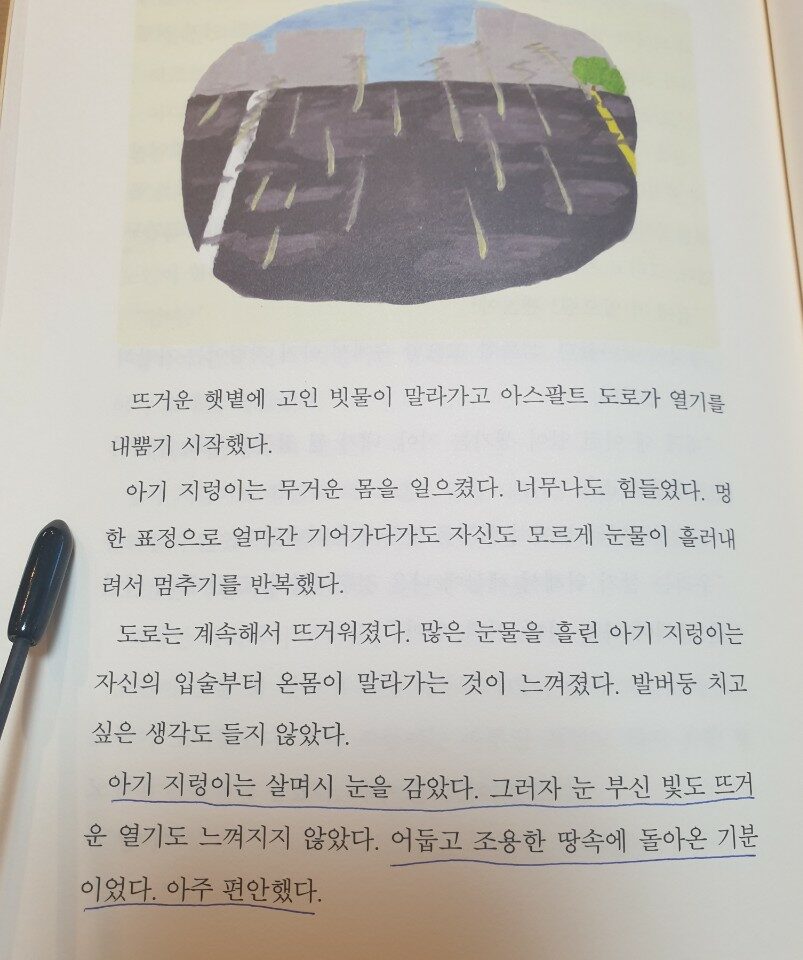 뜨거운 햇볕에 고인 빗물이 말라가고 아스팔트 도로가 열기를
내뿜기 시작했다.
아기 지렁이는 무거운 몸을 일으켰다. 너무나도 힘들었다. 멍
한 표정으로 얼마간 기어가다가도 자신도 모르게 눈물이 흘러내
려서 멈추기를 반복했다.
도로는 계속해서 뜨거워졌다. 많은 눈물을 흘린 아기 지렁이는
자신의 입술부터 온몸이 말라가는 것이 느껴졌다. 발버둥 치고
싶은 생각도 들지 않았다.
아기 지렁이는 살며시 눈을 감았다. 그러자 눈 부신 빛도 뜨거
운 열기도 느껴지지 않았다. 어둡고 조용한 땅속에 돌아온 기분
이었다. 아주 편안했다.